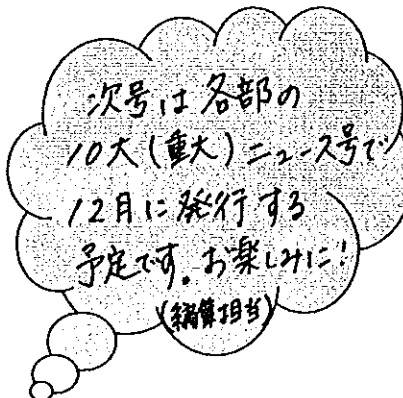 次号は各部の
10大(重大)ニュース号で
12月に発行する
予定です。お楽しみに!
(編集担当)